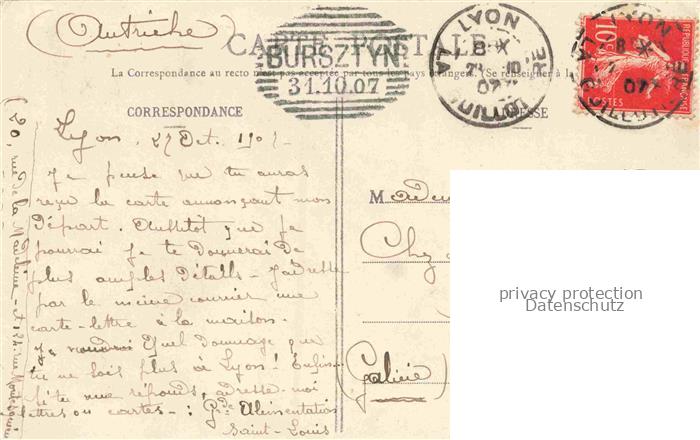 (Autriche)
CARTE POSTALE
La Correspondance au recto n'est pas acceptée par tous les pays étrangers. (Se renseigner à la
BURSZTYN
31.10.07
LYON
8 X
10
07
LA GUILLOTIERE
LYON
8 X
07
LA GUILLOTIERE
REPUBLIQUE FRANÇAISE
10c
POSTES
CORRESPONDANCE
Lyon, 27 Oct. 190
Je pense que tu auras
reçu la carte annonçant mon
Départ. Aussitôt que je
pourrai je te Donnerai De
plus amples Détails - j'adresse
par le même courrier une
carte-lettre à la maison.
Quel dommage que
tu ne sois plus à Lyon! Enfin
Si tu me réponds, adresse-moi
lettres ou cartes - : Gde Alimentation
Saint-Louis
(20, rue De la Madeleine - et
M
Chez
(Galicie)
privacy protection
Datenschutz